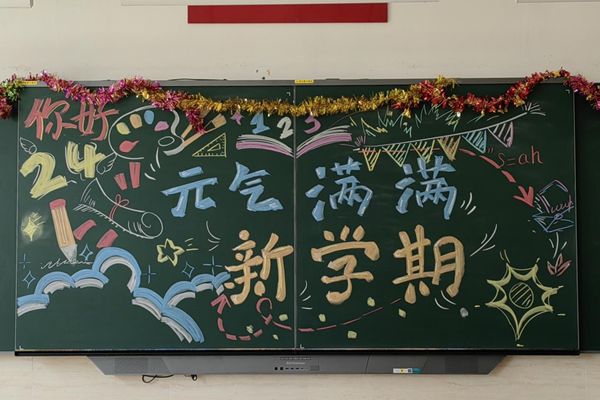 你好
24
1 2 3
s=ah
元气满满
新学期